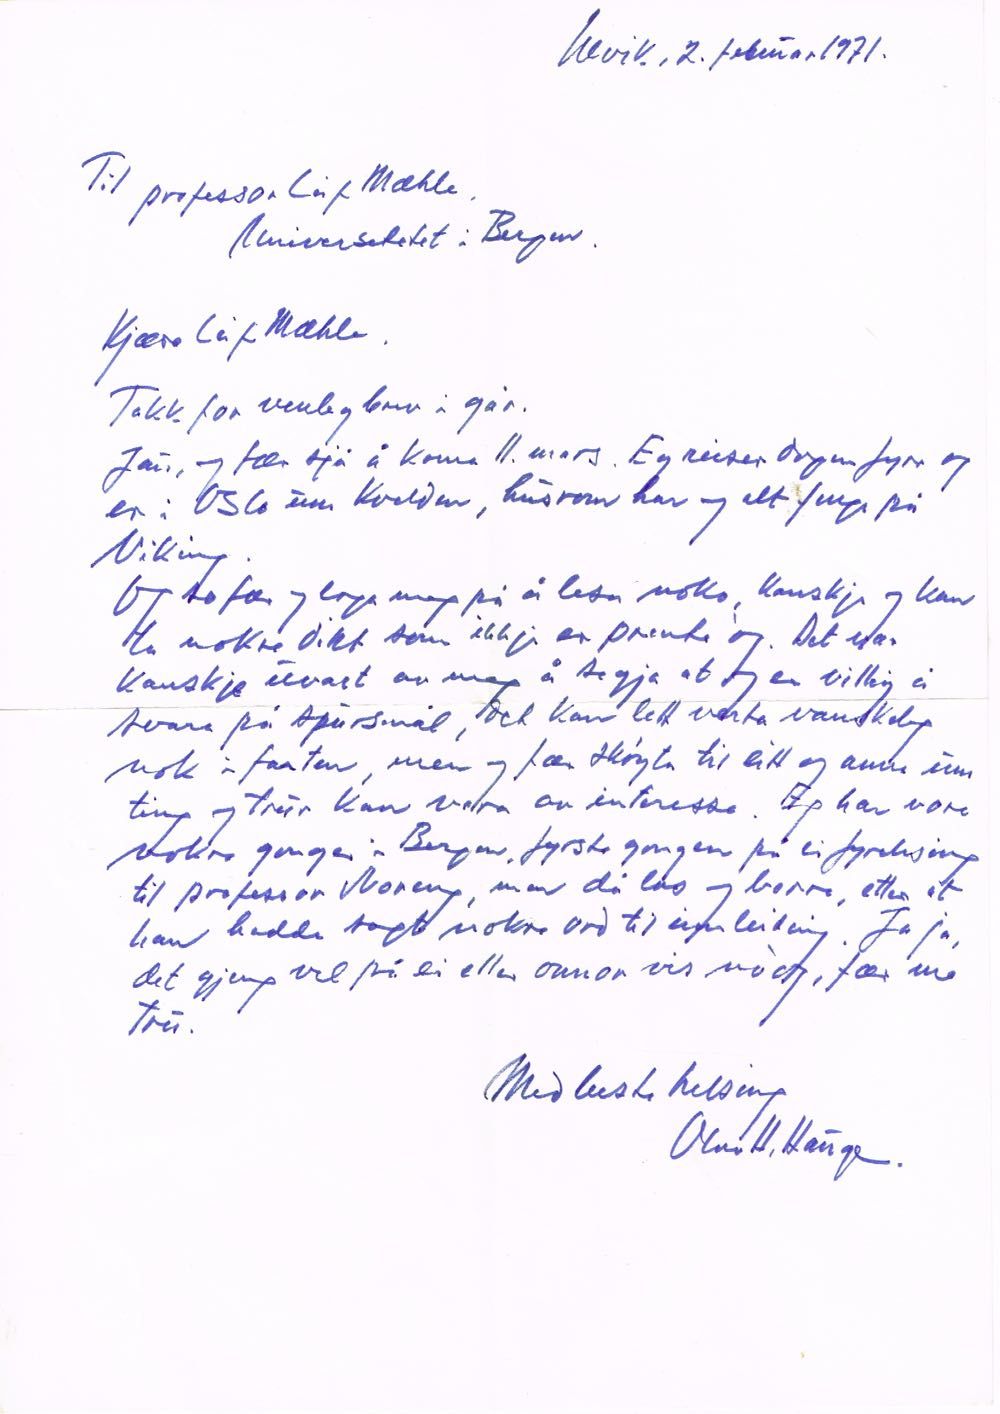 Ulvik, 2. februar 1971.
Til professor Leif Mæhle.
Universitetet i Bergen.
Kjære Leif Mæhle.
Takk for venleg brev i går.
Jau, eg fær sjå å koma 11. mars. Eg reiser dagen fyre og
er i Oslo um kvelden, husrom har eg alt finge på
Viking.
Og so fær eg laga meg på å lesa noko, kanskje eg kan
ta nokre dikt som ikkje er prenta og. Det var
kanskje uvart av meg å segja at eg er villig å
svara på spursmål, det kan lett verta vanskeleg
nok i farten, men eg fær skóyta til eitt og anna um
ting eg trur kan vera av interesse. Eg har vore
nokre gonger i Bergen, fyrste gongen på ei fyrelesing
til professor Noreng, men då las eg berre, etter at
han hadde sagt nokre ord til innleiding. Ja ja,
det gjeng vel på ei eller onnor vis nò òg, fær me
tru.
Med beste helsing
Olav H. Hauge.